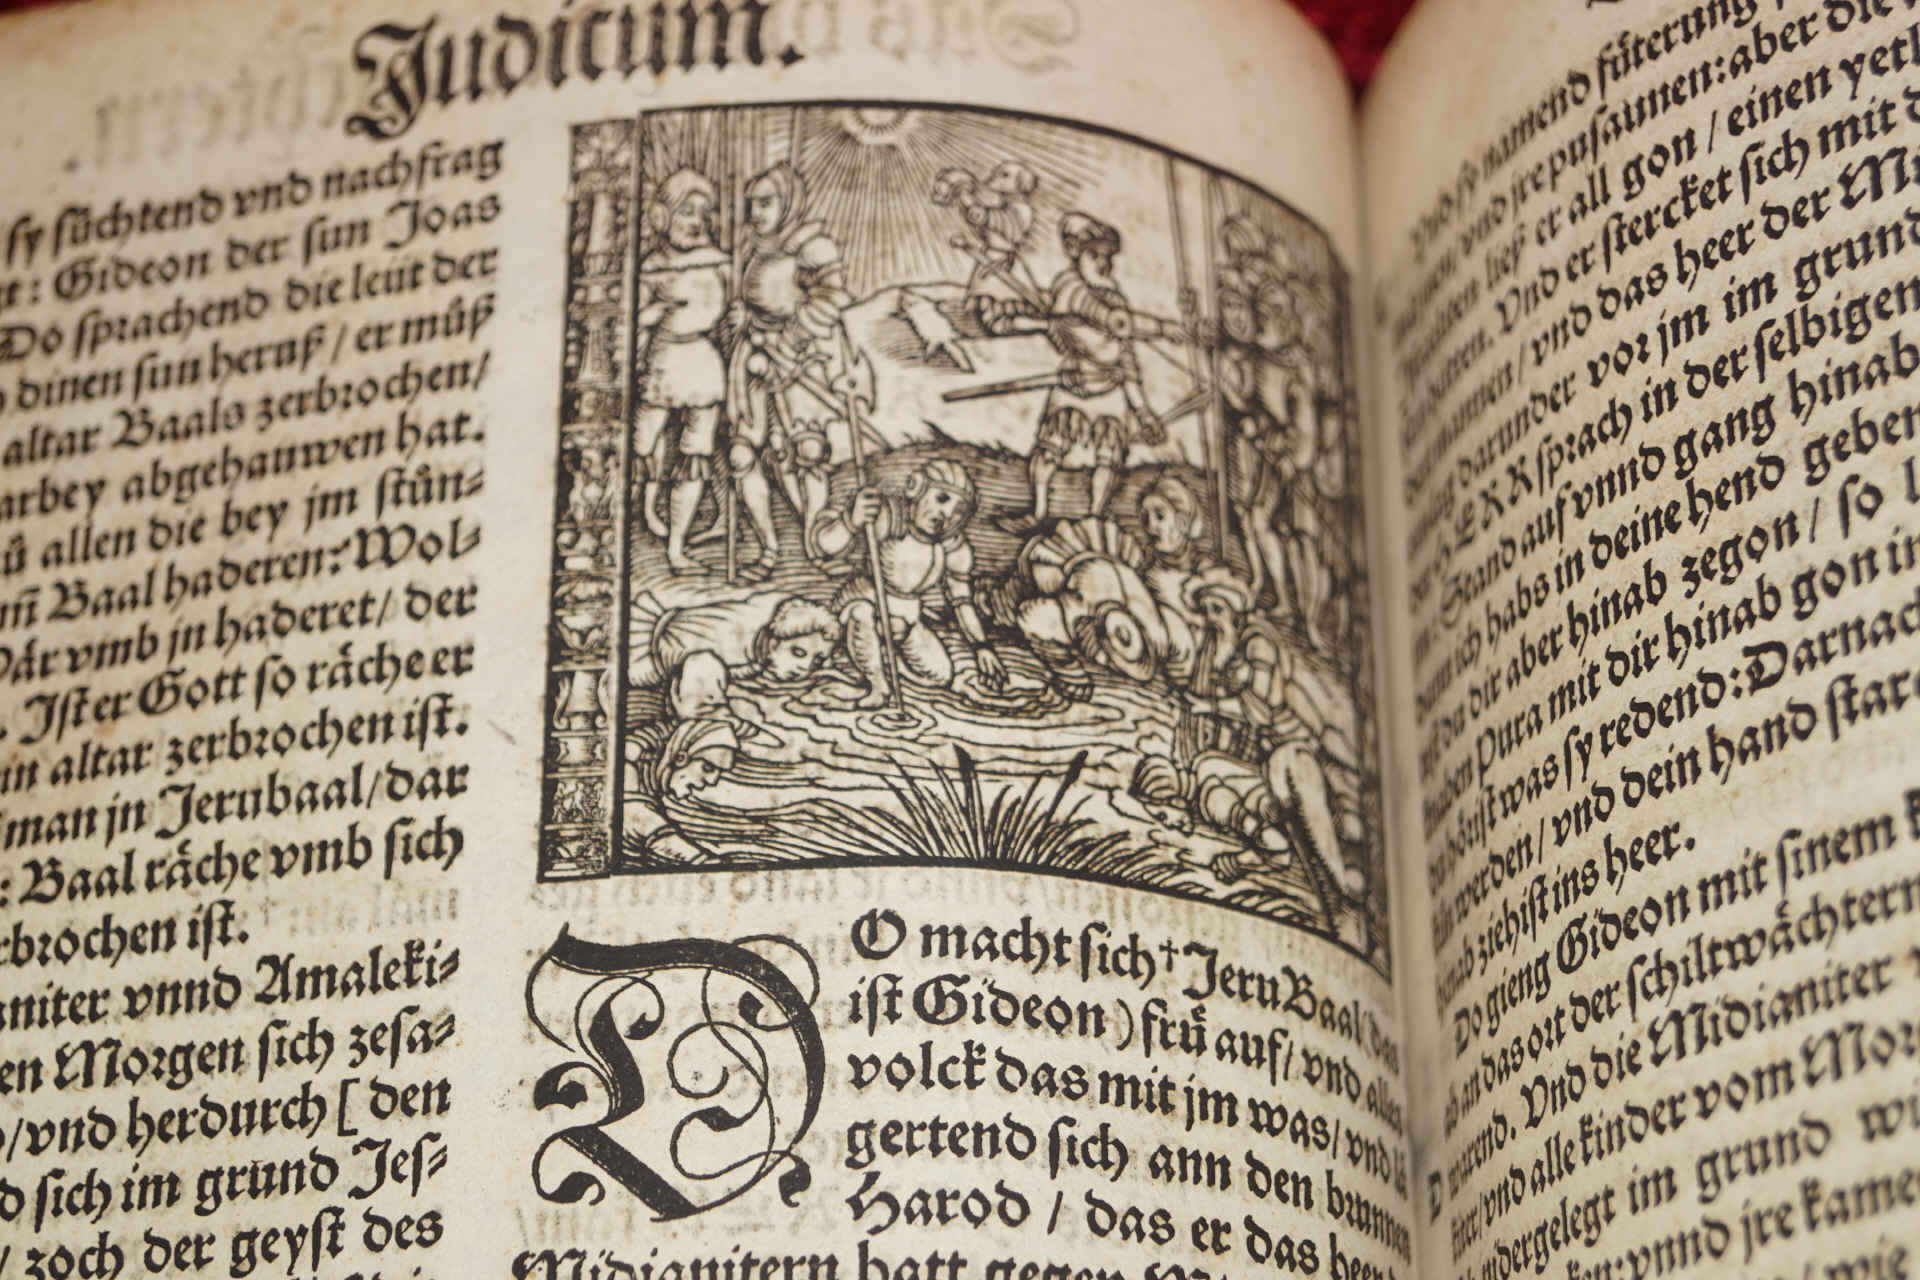 Judicum.
sy sůchtend vnd nachfrag
: Gideon der sun Joas
Do sprachend die leüt der
dinen sun heruß / er můß
altar Baals zerbrochen /
arbey abgehauwen hat.
allen die bey jm stůn⸗
Baal haderen: Wol⸗
vmb jn haderet / der
. Ist er Gott so räche er
in altar zerbrochen ist.
man jn Jerubaal / dar
: Baal räche vmb sich
rbrochen ist.
aniter vnnd Amaleki⸗
en Morgen sich zesa⸗
/ vnd herdurch [ den
d sich im grund Jes⸗
/ zoch der geyst des
DO macht sich † JeruBaal (das
ist Gideon) frů auf / vnd alles
volck das mit jm was / vnd lä
gertend sich ann den brunnen
Harod / das er das heer
Midianitern hatt gegen
Vnd sy namend fůterung
vnd jre pusaunen: aber die
ließ er all gon / einen yetl
Vnd er stercket sich mit d
/ vnd das heer der Mi
darunder vor jm im grund
HERR sprach in der selbigen
Stand auf vnnd gang hinab
ich habs in deine hend geben
du dir aber hinab zegon / so l
Pura mit dir hinab gon in
was sy redend: Darnach
werden / vnd dein hand starc
hinab ziehist ins heer.
Do gieng Gideon mit sinem
an das ort der schiltwächtern
warend. Vnd die Midianiter
/ vnd alle kinder vom Mor
nidergelegt im grund wi
: vnnd jre kame
/ wie